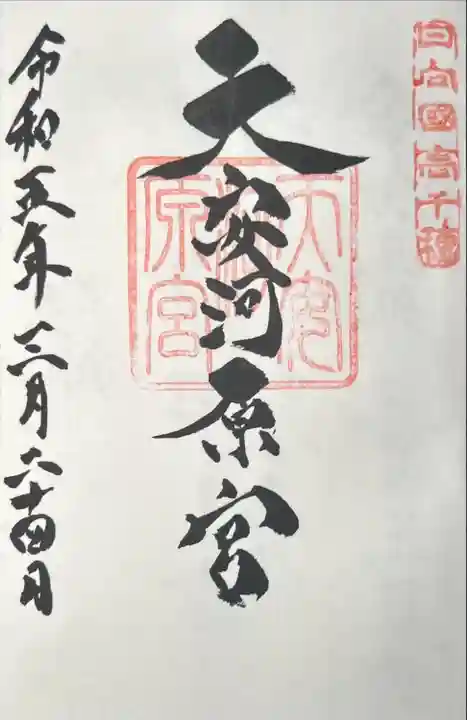 日向國高千穂
天安河原宮
天安河原宮
令和五年三月二十四日